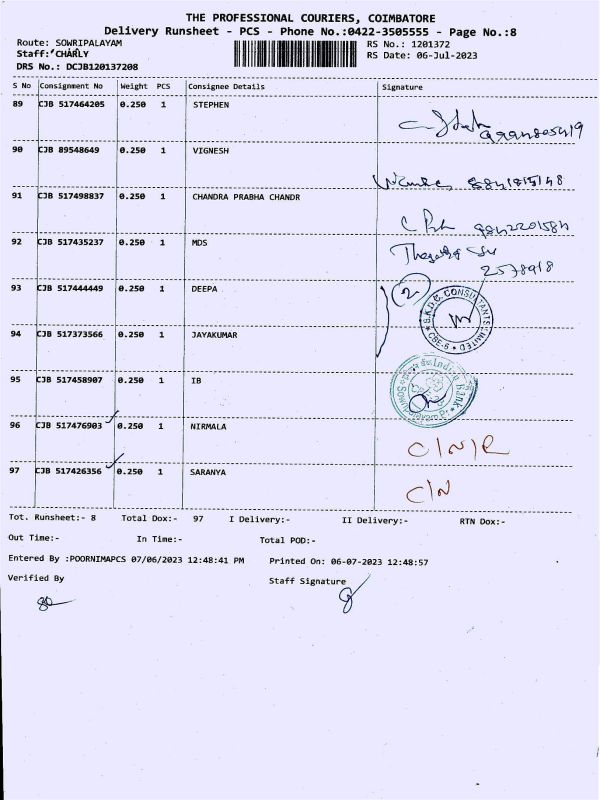 THE PROFESSIONAL COURIERS, COIMBATORE
Delivery Runsheet - PCS - Phone No.:0422-3505555 - Page No.:8
Route: SOWRIPALAYAM RS No.: 1201372
Staff: CHARLY RS Date: 06-Jul-2023
DRS No.: DCJB120137208
S No Consignment No Weight PCS Consignee Details Signature
89 CJB 517464205 0.250 1 STEPHEN
90 CJB 89548649 0.250 1 VIGNESH
91 CJB 517498837 0.250 1 CHANDRA PRABHA CHANDR
92 CJB 517435237 0.250 1 MDS
2578918
93 CJB 517444449 0.250 1 DEEPA 2 S.K.D.C. CONSULTANTS LIMITED CBE-6
94 CJB 517373566 0.250 1 JAYAKUMAR
95 CJB 517458907 0.250 1 IB Indian Bank
96 CJB 517476903 0.250 1 NIRMALA C/N/R
97 CJB 517426356 0.250 1 SARANYA C/N
Tot. Runsheet:- 8 Total Dox:- 97 I Delivery:- II Delivery:- RTN Dox:-
Out Time:- In Time:- Total POD:-
Entered By :POORNIMAPCS 07/06/2023 12:48:41 PM Printed On: 06-07-2023 12:48:57
Verified By Staff Signature